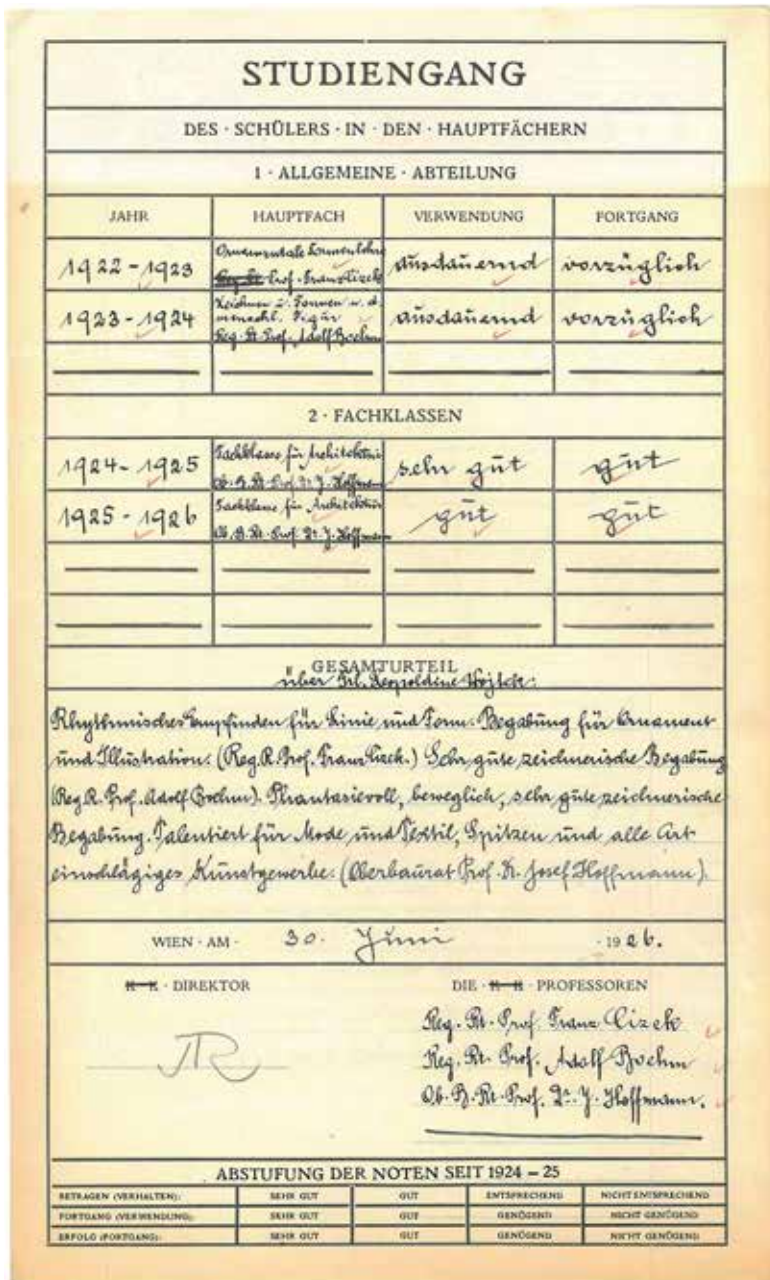 STUDIENGANG
DES · SCHÜLERS · IN · DEN · HAUPTFÄCHERN
1 · ALLGEMEINE · ABTEILUNG
JAHR HAUPTFACH VERWENDUNG FORTGANG
1922 - 1923 Ornamentale Formenlehre Prof. Franz Cizek ausdauernd vorzüglich
1923 - 1924 Zeichnen u. Formen n. d. menschl. Figur Reg. Rt. Prof. Adolf Boehm ausdauernd vorzüglich
2 · FACHKLASSEN
1924 - 1925 Fachklasse für Architektur Ob. B. Rt. Prof. Dr. J. Hoffmann sehr gut gut
1925 - 1926 Fachklasse für Architektur Ob. B. Rt. Prof. Dr. J. Hoffmann gut gut
GESAMTURTEIL
über Frl. Leopoldine Wojtek:
Rhythmisches Empfinden für Linie und Form. Begabung für Ornament
und Illustration. (Reg. R. Prof. Franz Cizek.) Sehr gute zeichnerische Begabung
(Reg. R. Prof. Adolf Boehm). Phantasievoll, beweglich, sehr gute zeichnerische
Begabung. Talentiert für Mode und Textil, Spitzen und alle Art
einschlägiges Kunstgewerbe. (Oberbaurat Prof. Dr. Josef Hoffmann).
WIEN · AM · 30. Juni · 1926.
K · K · DIREKTOR DIE · K · K · PROFESSOREN
Reg. Rt. Prof. Franz Cizek
Reg. Rt. Prof. Adolf Boehm
Ob. B. Rt. Prof. Dr. J. Hoffmann.
ABSTUFUNG DER NOTEN SEIT 1924 – 25
BETRAGEN (VERHALTEN): SEHR GUT GUT ENTSPRECHEND NICHT ENTSPRECHEND
FORTGANG (VERWENDUNG): SEHR GUT GUT GENÜGEND NICHT GENÜGEND
ERFOLG (FORTGANG): SEHR GUT GUT GENÜGEND NICHT GENÜGEND